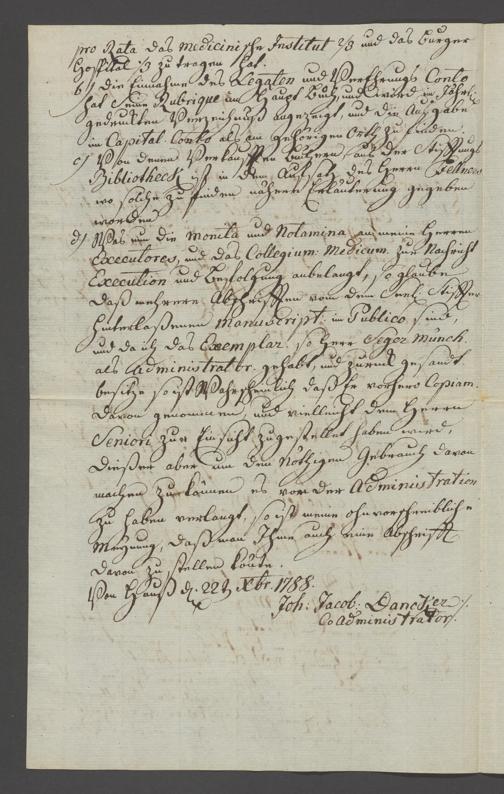 pro Rata das medicinische Institut 2/3 und das Burger
Hospital 1/3 zu tragen hat.
b) die Einnahme des Legaten und Verehrungs Conto
hat seine Rubrique im Haupt Buch, und wird in Jährl:
gedruckten Verzeichnuß angezeigt, und die Ausgabe
im Capital Conto als am gehörigen Ort zu finden.
c) Von denen verkauften Büchern, aus der Stifftungs
Bibliotheck ist in dem Aufsatz des Herrn Fellners
wo solche zu finden nähere Erläuterung gegeben
worden.
d) Was nun die monita und Notamina an meine Herren
Executores, und das Collegium: Medicum zur Nachricht
Execution und Befolgung anbelangt, so glaube
daß mehrere Abschrifften von dem Seel: Stiffter
hinterlaßenen manuscript: in Publico sind,
und da ich das Exemplar so Herr Senior Münch
als Administrator gehabt, und zurück gesandt
besitze, so ist Wahrscheinlich daß Er vorhero Copiam
davon genommen, und vielleicht dem Herrn
Seniori zur Einsicht zugestellet haben wird,
Dießer aber um den Nöthigen Gebrauch davon
machen zu können es von der Administration
zu haben verlangt, so ist meine ohnvorschreibliche
Meynung, daß man Ihme auch eine Abschrifft
davon zu stellen könte.
Von Hauß d. 22 t. Xbr. 1788.
Joh: Jacob: Dancker
Coadministrator.